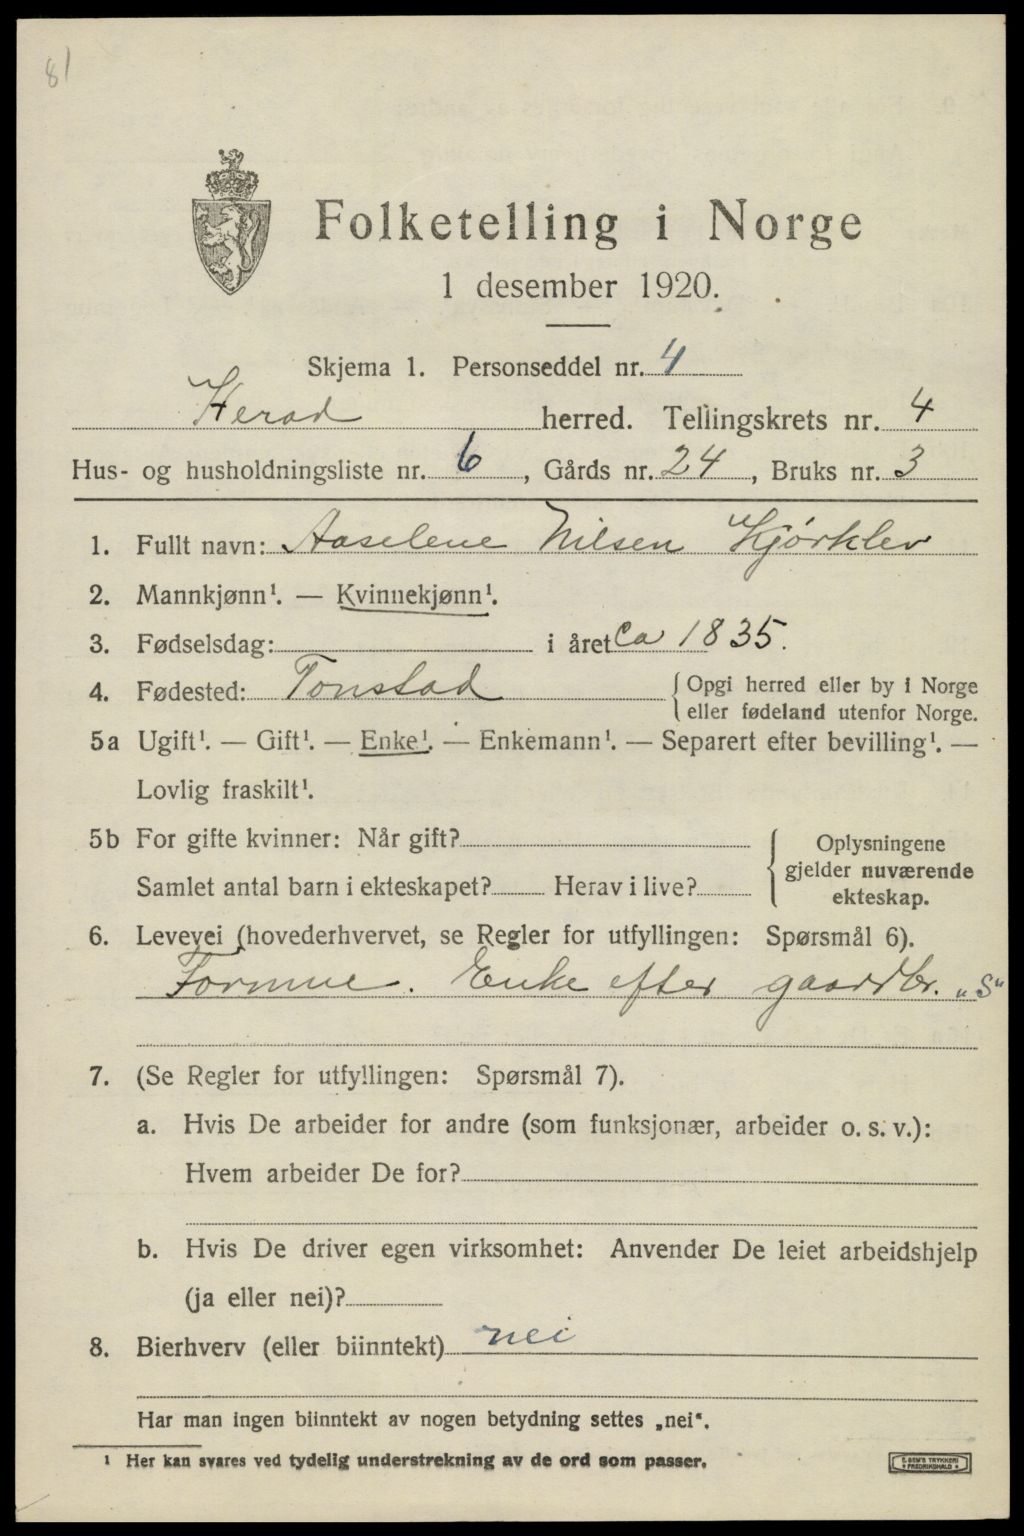 81
Folketelling i Norge
1 desember 1920.
Skjema 1. Personseddel nr. 4
Herad herred. Tellingskrets nr. 4
Hus- og husholdningsliste nr. 6, Gårds nr. 24, Bruks nr. 3
1. Fullt navn: Aaselene Nilsen Kjørklev
2. Mannkjønn¹. — Kvinnekjønn¹.
3. Fødselsdag: i året ca 1835.
4. Fødested: Tonstad { Opgi herred eller by i Norge
eller fødeland utenfor Norge.
5a Ugift¹. — Gift¹. — Enke¹. — Enkemann¹. — Separert efter bevilling¹. —
Lovlig fraskilt¹.
5b For gifte kvinner: Når gift?
Samlet antal barn i ekteskapet? Herav i live?
Oplysningene
gjelder nuværende
ekteskap.
6. Levevei (hovederhvervet, se Regler for utfyllingen: Spørsmål 6).
Formue. Enke efter gaardbr. „S“
7. (Se Regler for utfyllingen: Spørsmål 7).
a. Hvis De arbeider for andre (som funksjonær, arbeider o. s. v.):
Hvem arbeider De for?
b. Hvis De driver egen virksomhet: Anvender De leiet arbeidshjelp
(ja eller nei)?
8. Bierhverv (eller biinntekt) nei
Har man ingen biinntekt av nogen betydning settes „nei“.
¹ Her kan svares ved tydelig understrekning av de ord som passer.
E. SEM'S TRYKKERI
• FREDRIKSHALD •